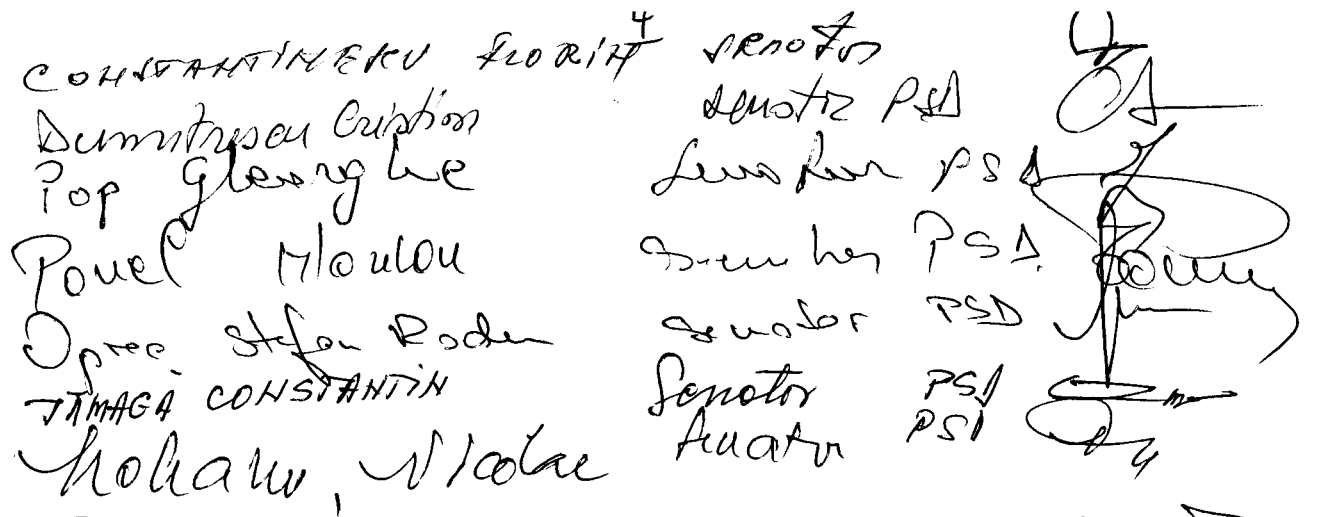 CONSTANTINESCU FLORIN senator
Dumitrescu Cristian senator PSD
Pop Gheorghe Senator PSD
Pavel Marian senator PSD
Oprea Stefan Radu senator PSD
TĂMAGĂ CONSTANTIN Senator PSD
Nicolae Senator PSD